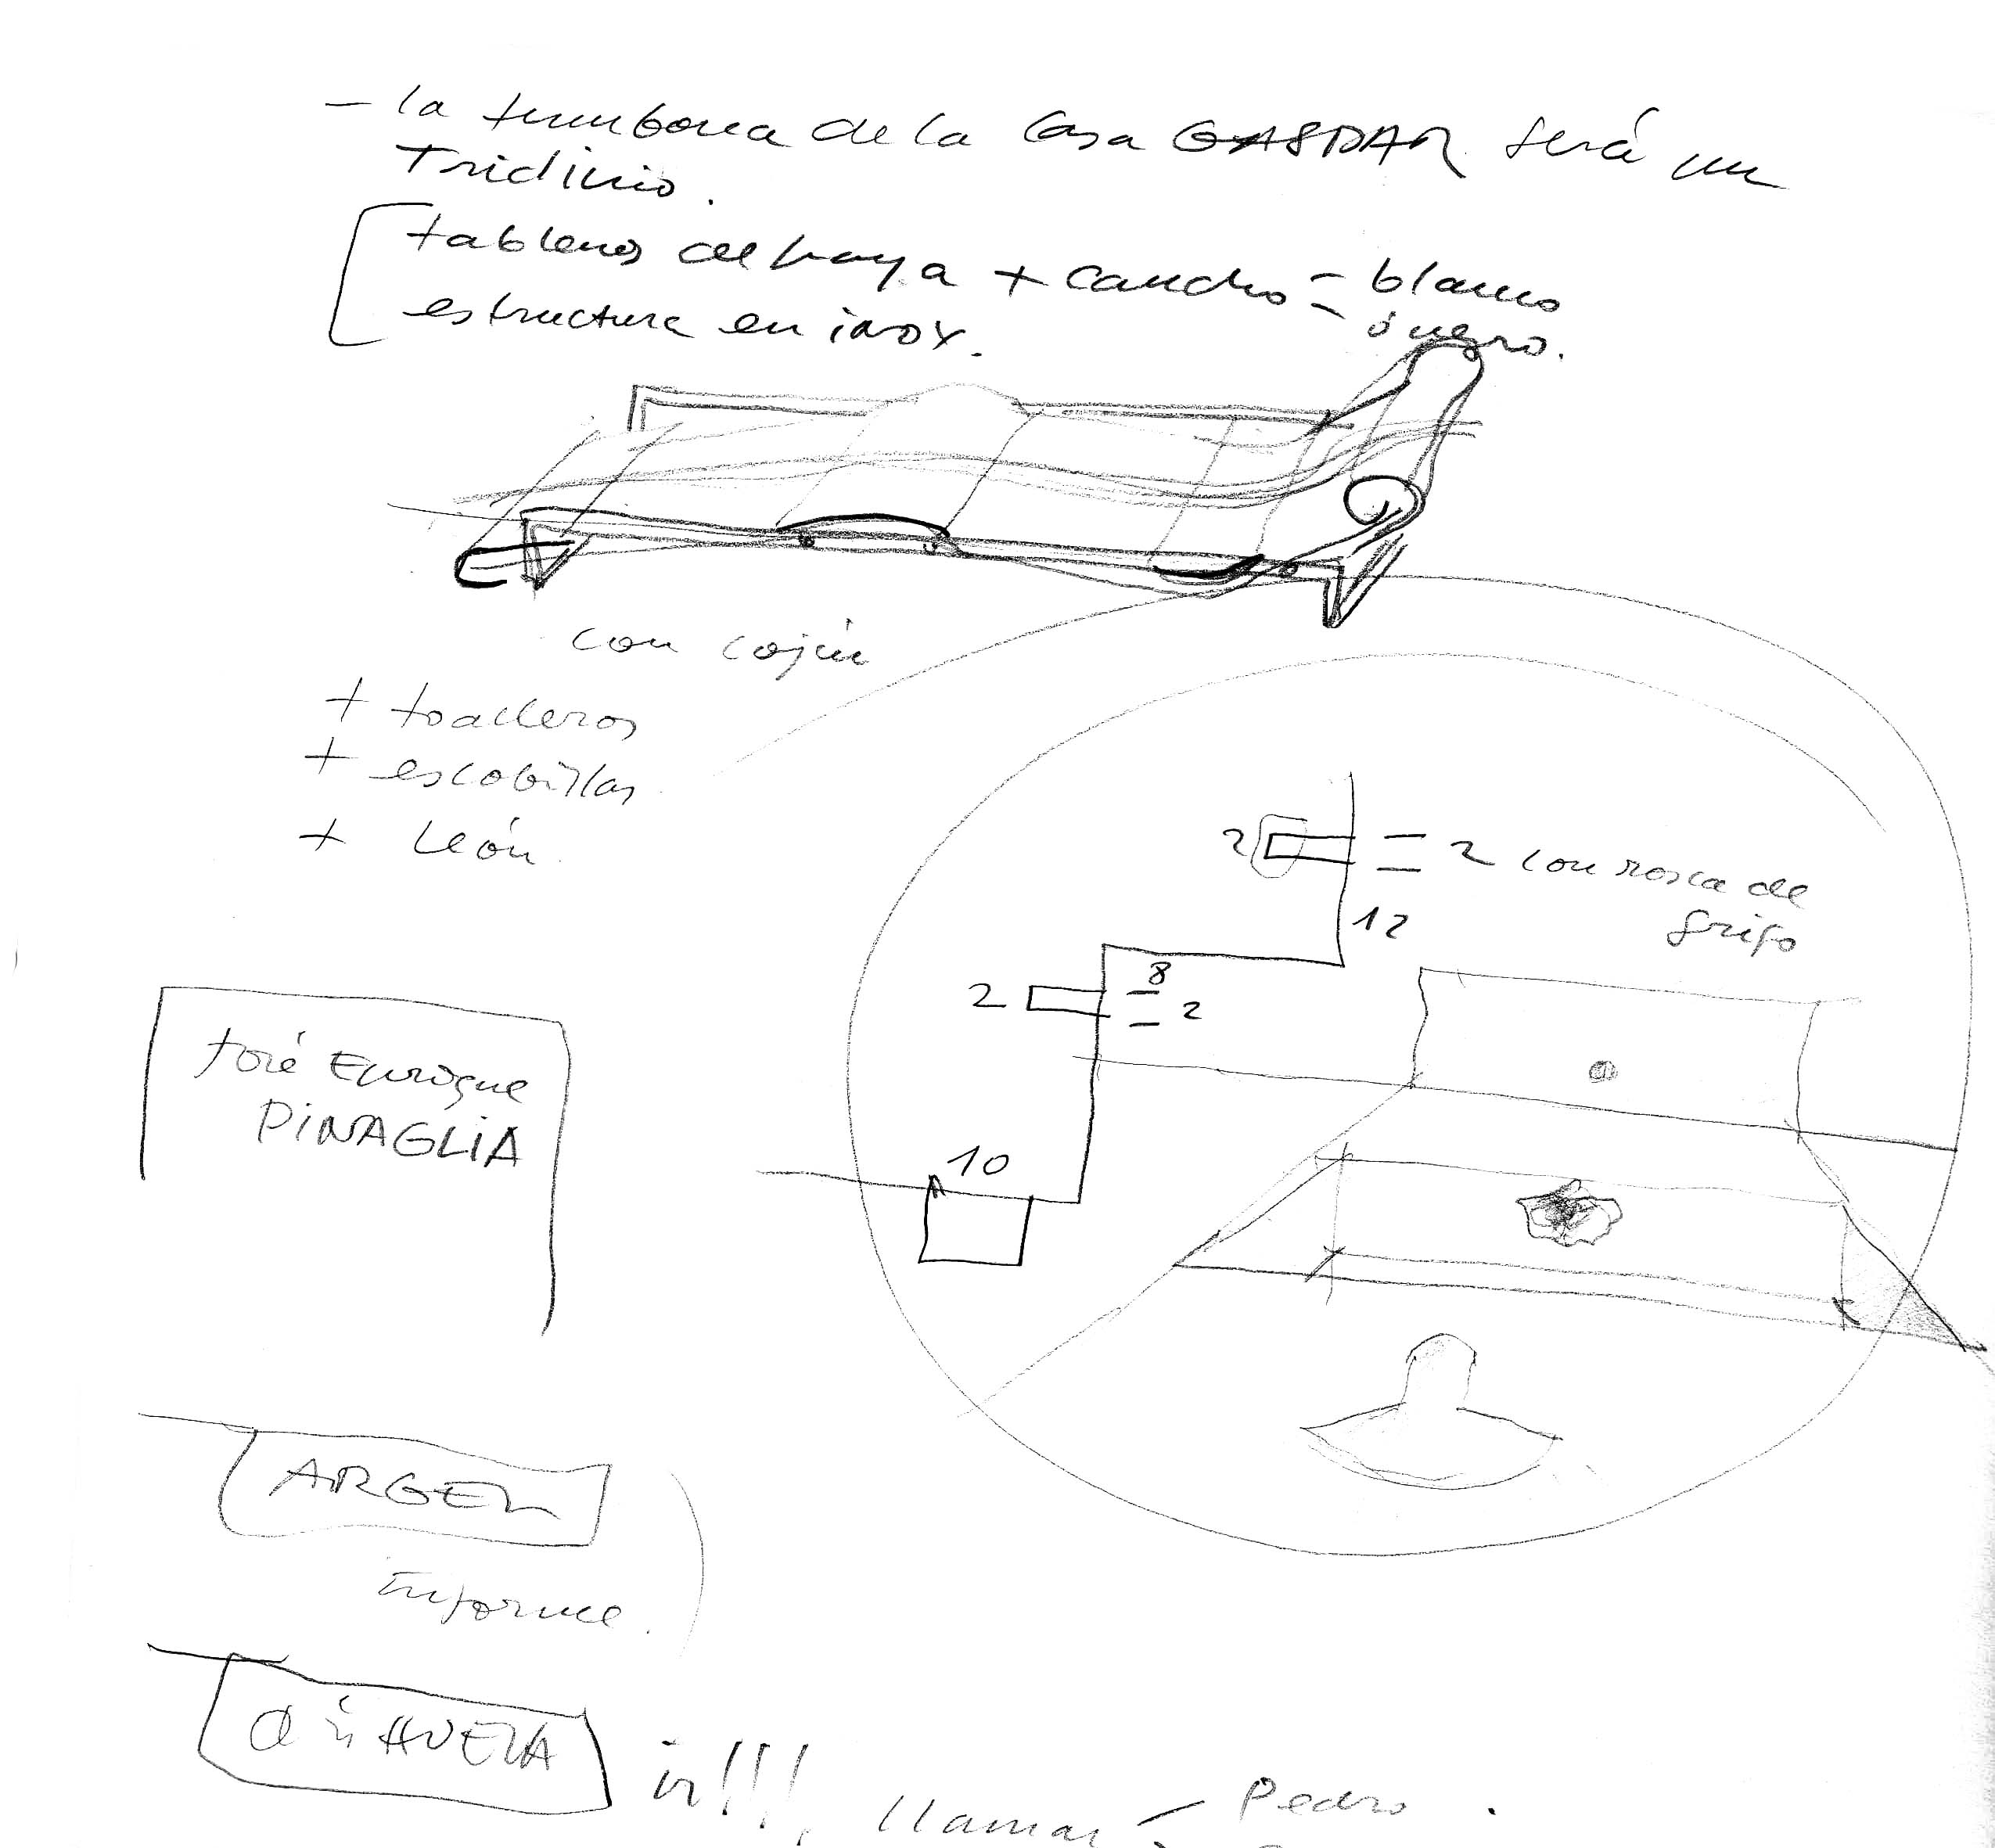 – la tumbona de la Casa GASPAR será un
Triclinio.
tableros de haya + caucho = blanco
ó negro.
estructura en inox.
con cojín
+ toalleros
+ escobillas
+ León
2 = 2 con rosca de
grifo
12
8
2 = 2
10
José Enrique
PINAGLIA
ARGEL
Informe.
ir!!! llamar - Pedro